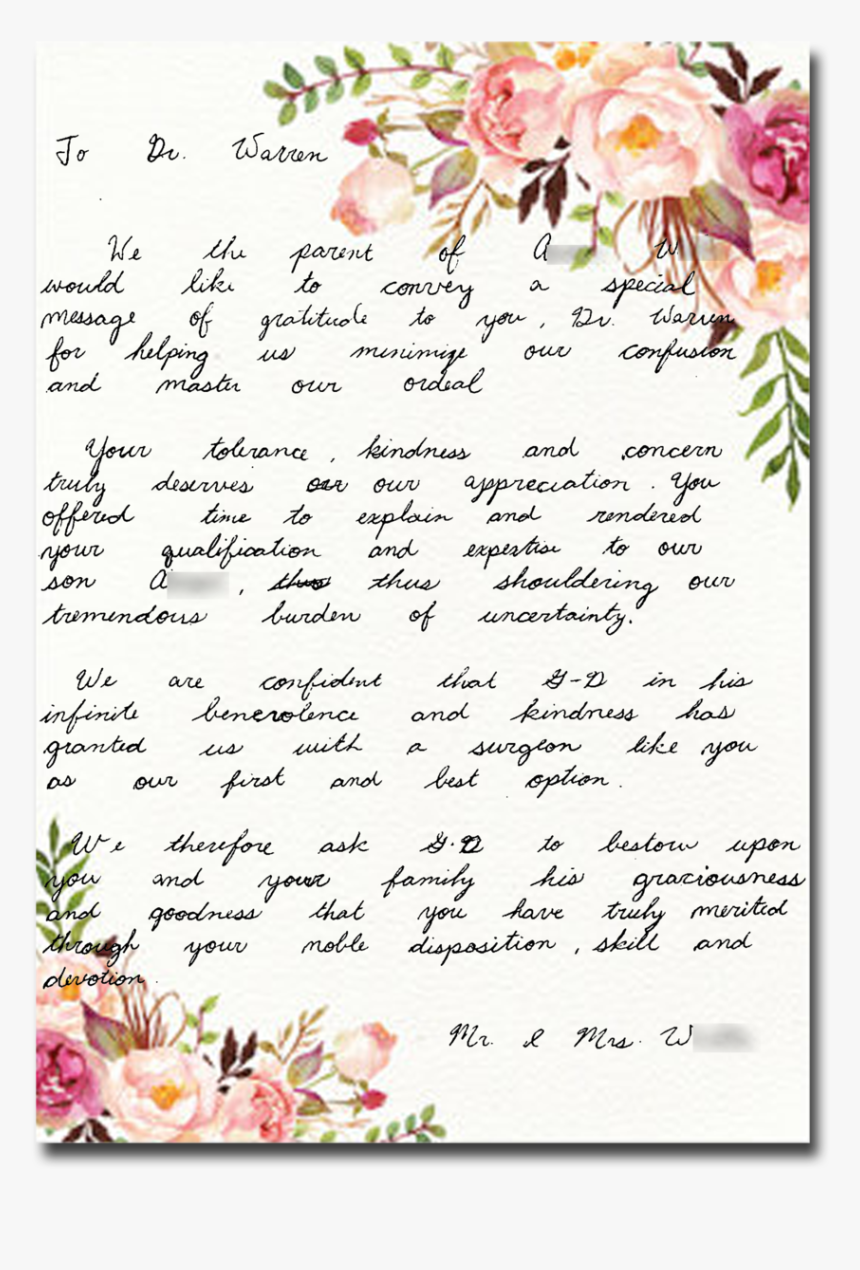 To Dr. Warren
We the parent of A W
would like to convey a special
message of gratitude to you, Dr. Warren
for helping us minimize our confusion
and master our ordeal
Your tolerance, kindness and concern
truly deserves our our appreciation. You
offered time to explain and rendered
your qualification and expertise to our
son A , thus thus shouldering our
tremendous burden of uncertainty.
We are confident that G-D in his
infinite benevolence and kindness has
granted us with a surgeon like you
as our first and best option.
We therefore ask G-D to bestow upon
you and your family his graciousness
and goodness that you have truly merited
through your noble disposition, skill and
devotion.
Mr. & Mrs. W